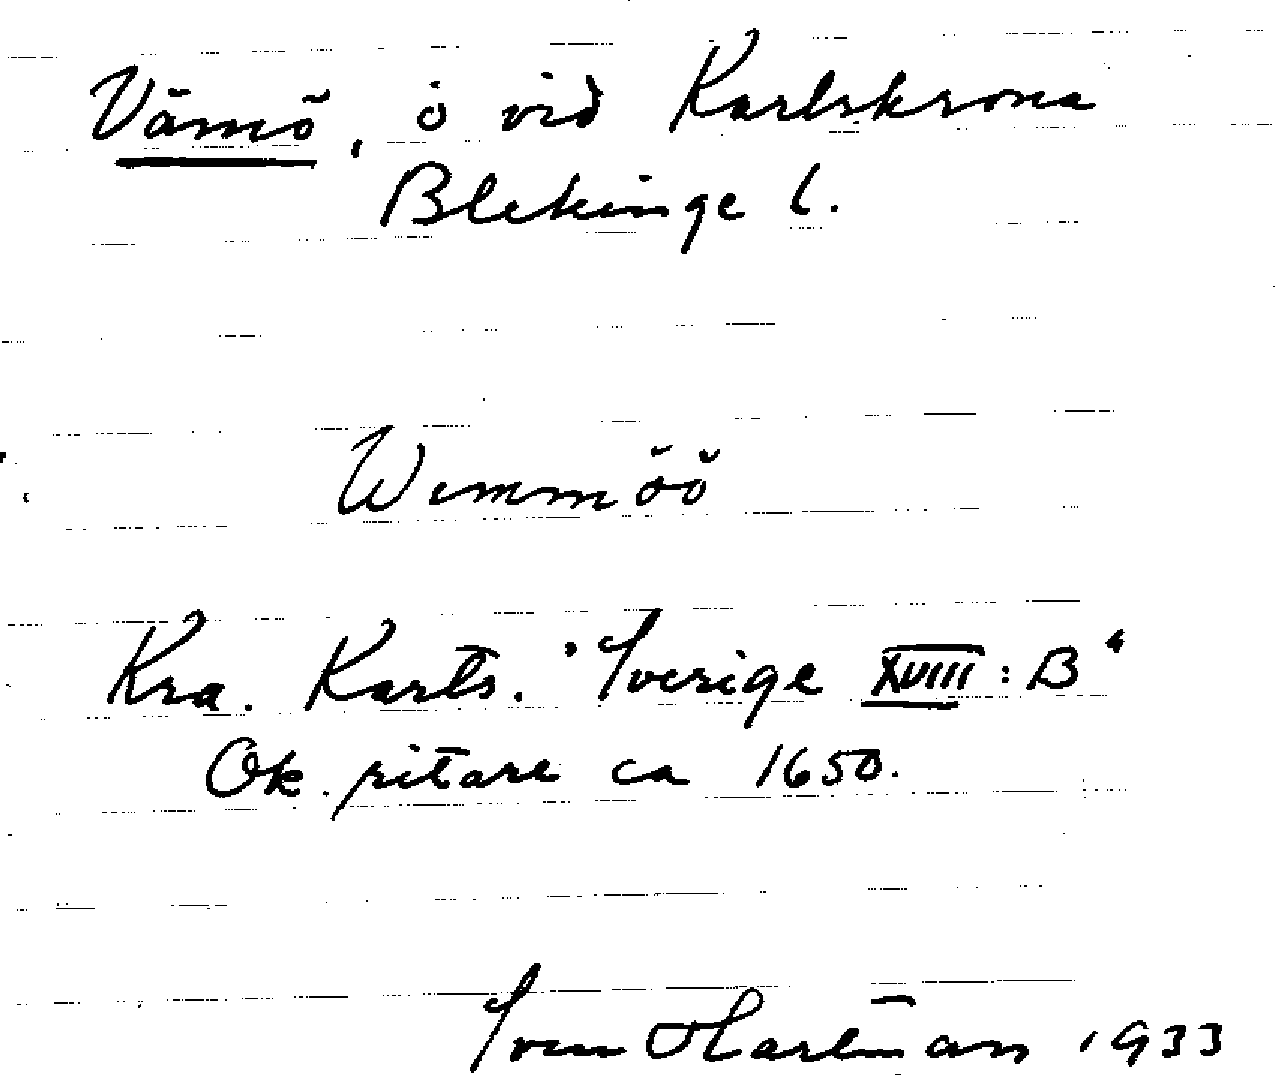 Vämö, ö vid Karlskrona
Blekinge l.
Wemmöö
Kra. Karts. "Sverige XVIII:B"
Ok. ritare ca 1650.
Sven Hartman 1933